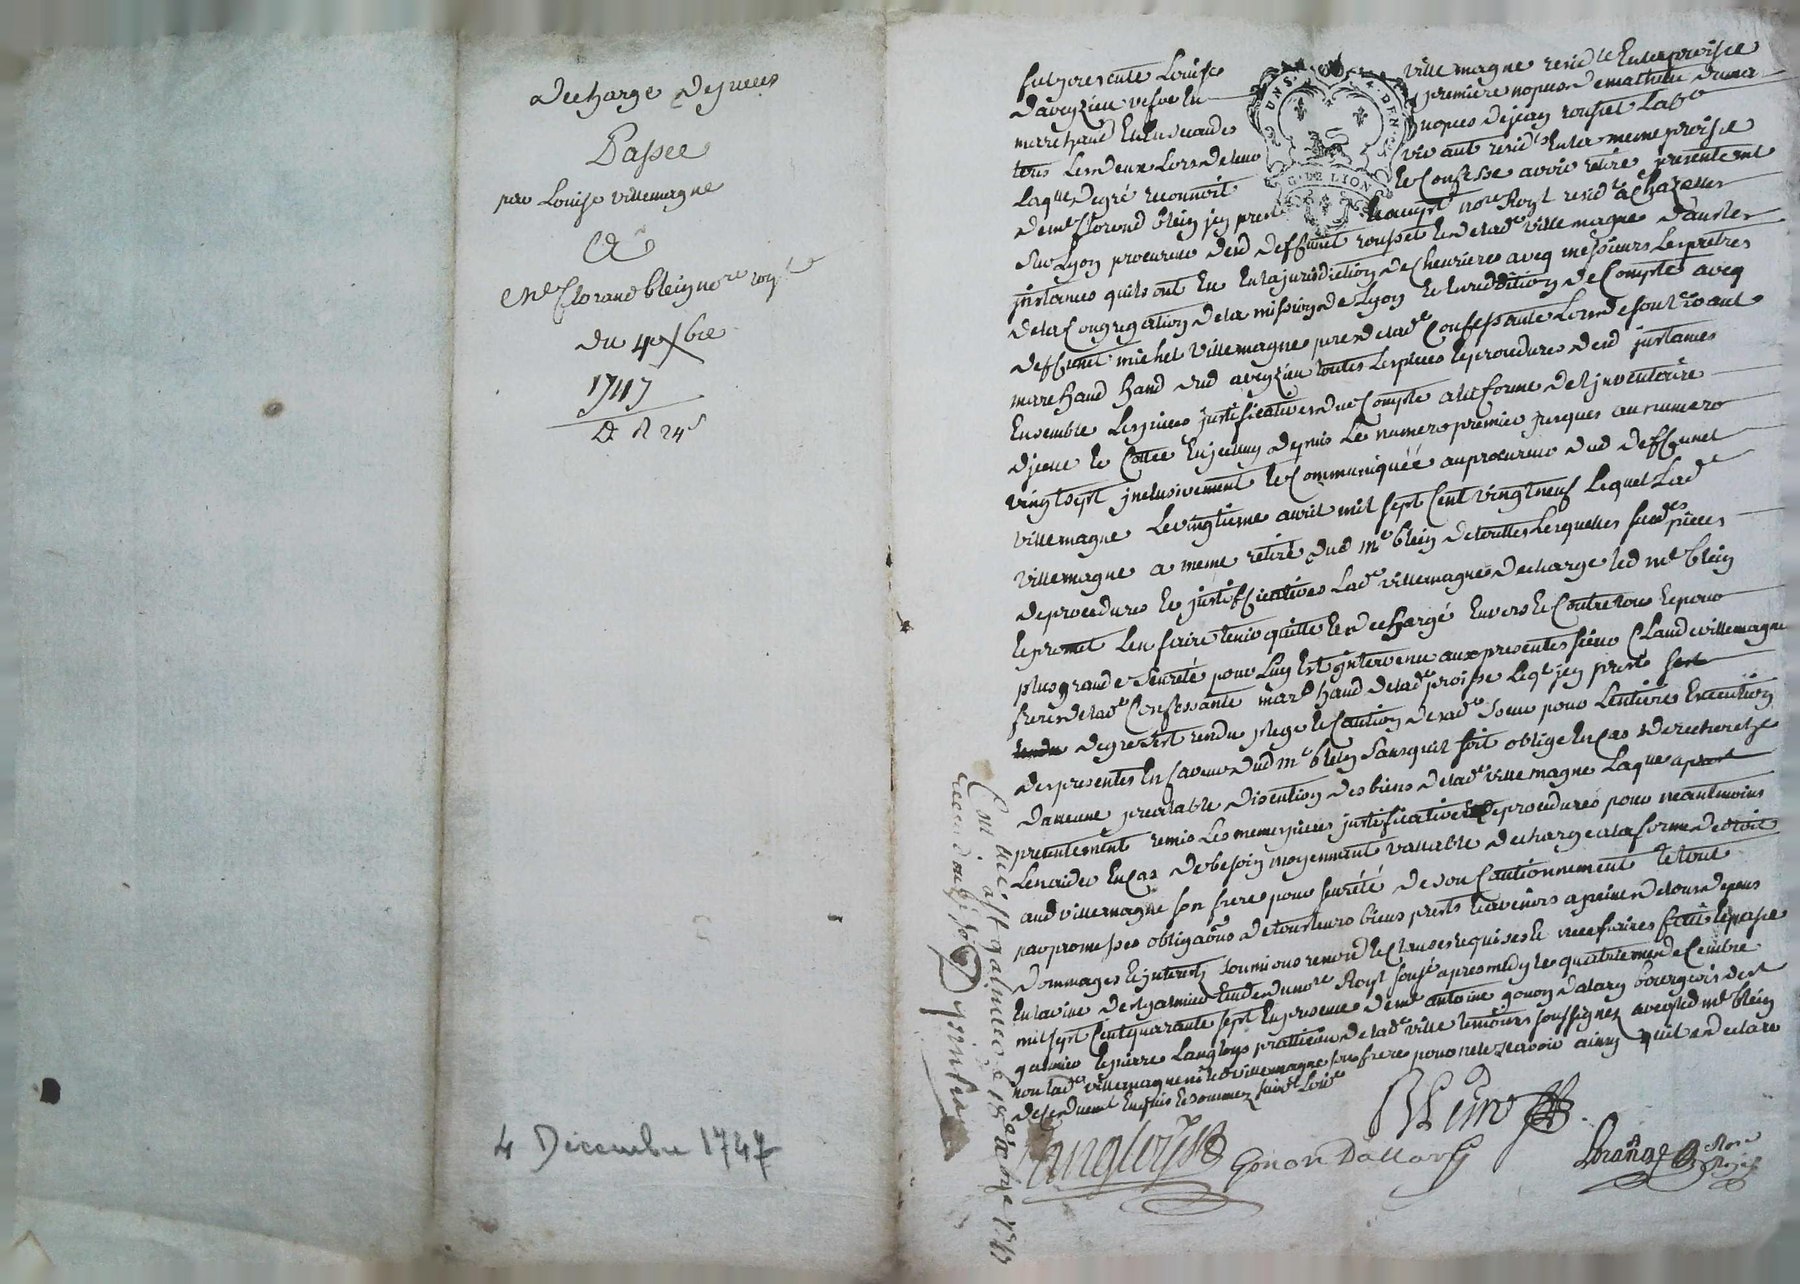 decharge de pieces
Passée
par Louise villemagne
A
Me florand blein nore royl
du 4e Xbre
1747
24s
4 Decembre 1747
fut presente Louise
villemagne resid.te En la parroisse
d'aveyzieu vefve En
premiere nopces de mathieu
marchand Et En secondes
nopces de jean rousset Lab.r
tous Les deux Lors de leur
vivant resid.ts En la meme proisse
Laque. de gré reconnoit
et Confesse avoir retiré presentement
de me. florand blein jcy pnt
nore. Royl resid.t a Chazelles
sur Lyon procureur desd deffunct rousset et de lad.e villemagne dans les
jnstances qu'ils ont Eu En la jurisdiction de Chevrieres avec messieurs Les prêtres
de la Congregation de la mission de Lyon et En reddition de Compte avec
deffunct michel villemagne pere de lad.e Confessante Lors de son vivant
marchand dud aveyzieu toutes Les pieces et procedures desd jnstances
Ensemble Les pieces justificatives du Compte a la forme de l'jnventaire
d'jcelles et Cottée En jcelluy depuis Le numero premier jusques au numero
vingt sept jnclusivement et Communiquée au procureur dud deffunct
villemagne Le vingtieme avril mil sept Cent vingt neuf Lequel Lad.e
villemagne a meme retiré dud me. blein de toutes Lesquelles susd.es pieces
de procedures et justificatives Lad.e villemagne decharge led me. blein
et promet L'en faire tenir quitte et dechargé Envers et Contre tous et pour
plus grande seureté pour Luy Est jntervenu aux presentes sieur Claude villemagne
frere de lad.e Confessante marchand de lad.e proisse Leql jcy pnt
de gré s'est rendu plege et Caution de lad.e soeur pour L'entiere Execution
des presentes En faveur dud me. blein sans qu'il soit obligé En Cas de recherche
d'aucune prealable discution des biens de lad.e villemagne Laque. a
presentement remis Les memes pieces justificatives et procedures pour neantmoins
L'en aider En Cas de besoin moyennant vallable decharge a la forme de droit
aud villemagne son frere pour seureté de son Cautionnement et tout
par promesses obligaõns de tous leurs biens pnts et avenirs a peine de tous depens
dommages et jnterests soumions renon.on et Clauses requises et necessaires fait et passé
En la ville de st galmier Etude du nore. Royl soussé. apres midy le quatrieme decembre
mil sept Cent quarante sept En presence de me. antoine gonon dalary bourgeois de st
galmier et pierre Langloys praticien de lad.e ville temoins soussignez avec led me. blein
non lad.e villemagne ni led villemagne son frere pour ne le sçavoir ainsi qu'il ont declaré
de ce duement Enquis et sommez
Langloys
Gonon Dallary
Bleino
Lorange
Nore
Royl
UNS.4.DEN.
G. DE LION
Con.llé a st galmier le 18 decembre 1747